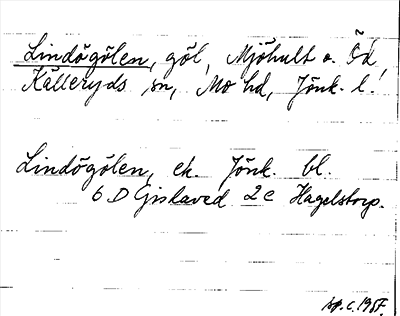 Lindögölen, göl, Mjöhult o. Öd,
Källeryds sn, Mo hd, Jönk. l.
Lindögölen, ek. Jönk. bl.
6 D Gislaved 2c Hagelstorp.
1957.